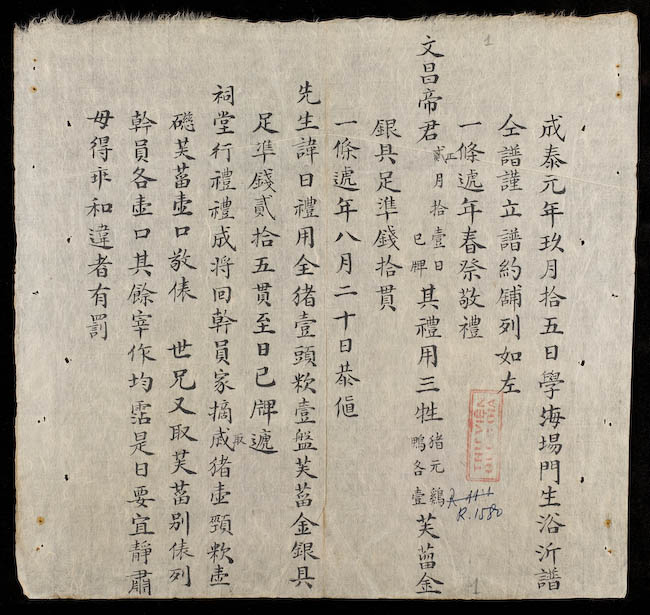 成泰元年玖月拾五日學海場門生浴沂譜
仝譜謹立譜約鋪列如左
一條遞年春祭敬禮
文昌帝君貳正月拾壹日巳牌其禮用三牲猪元鷄鴨各壹芙蒥金
銀具足準錢拾貫
一條遞年八月二十日恭值
先生諱日禮用全猪壹頭炊壹盤芙蒥金銀具
足準錢貳拾五貫至日巳牌遞
祠堂行禮禮成將回幹員家摘取猪壹頸炊壹
芙蒥壹口敬俵 世兄又取芙蒥別俵列
幹員各壹口其餘宰作均霑是日要宜靜肅
毋得乖和違者有罰
THƯ VIỆN
R.1580
1
1